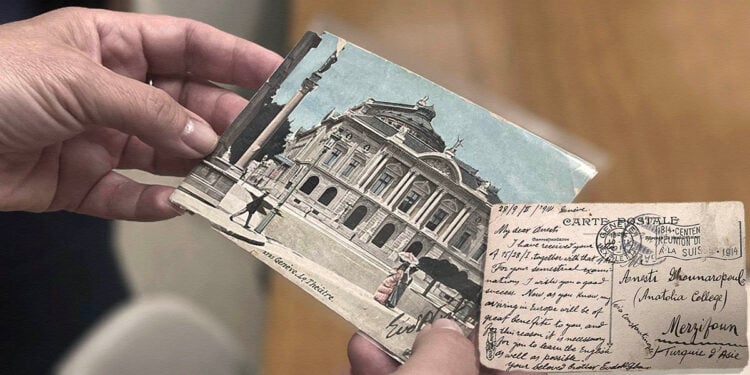 Genève. Le Théâtre
28/9/ 1914 Genève.
CARTE POSTALE
Correspondance
My dear Anesti
I have received your
of 15/28/I. together with that of
For your semestrial exami-
nations, I wish you a good
success. Now, as you know, my
arriving in Europe will be of
great benefits to you, and
for this reason it is necessary
for you to learn the English
as well as possible.
your beloved brother
GENÈVE
1814-CENTEN
RÉUNION DE
A LA SUISSE-1914
Anesti
(Anatolia College)
via Constantinople
Merzifoun
Turquie d'Asie